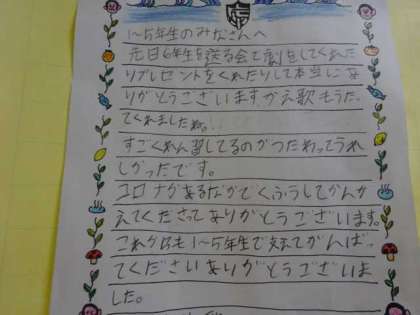 1~5年生のみなさんへ
元日6年生を送る会で劇をしてくれた
りプレゼントをくれたりして本当にあ
りがとうございますかえ歌もうたっ
てくれましたね。
すごくれん習してるのがつたわってうれ
しかったです。
コロナがあるなかでくふうしてかんが
えてくださってありがとうございます。
これからも1~5年生で支えてがんばっ
てくださいありがとうございま
した。